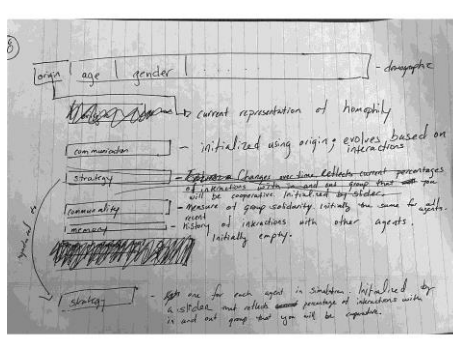 origin | age | gender | . . . . . . - demographic
current representation of homophily
communication - initialized using origin, evolves based on
interactions
strategy - Changes over time. Reflects current percentages
of interactions with in and out group that you
will be cooperative. Initialized by slider.
communality - Measure of group solidarity. Initially the same for all agents.
memory - recent history of interactions with other agents.
Initially empty.
strategy - one for each agent in simulation. Initialized by
a slider and reflects percentage of interactions with
in and out group that you will be cooperative.